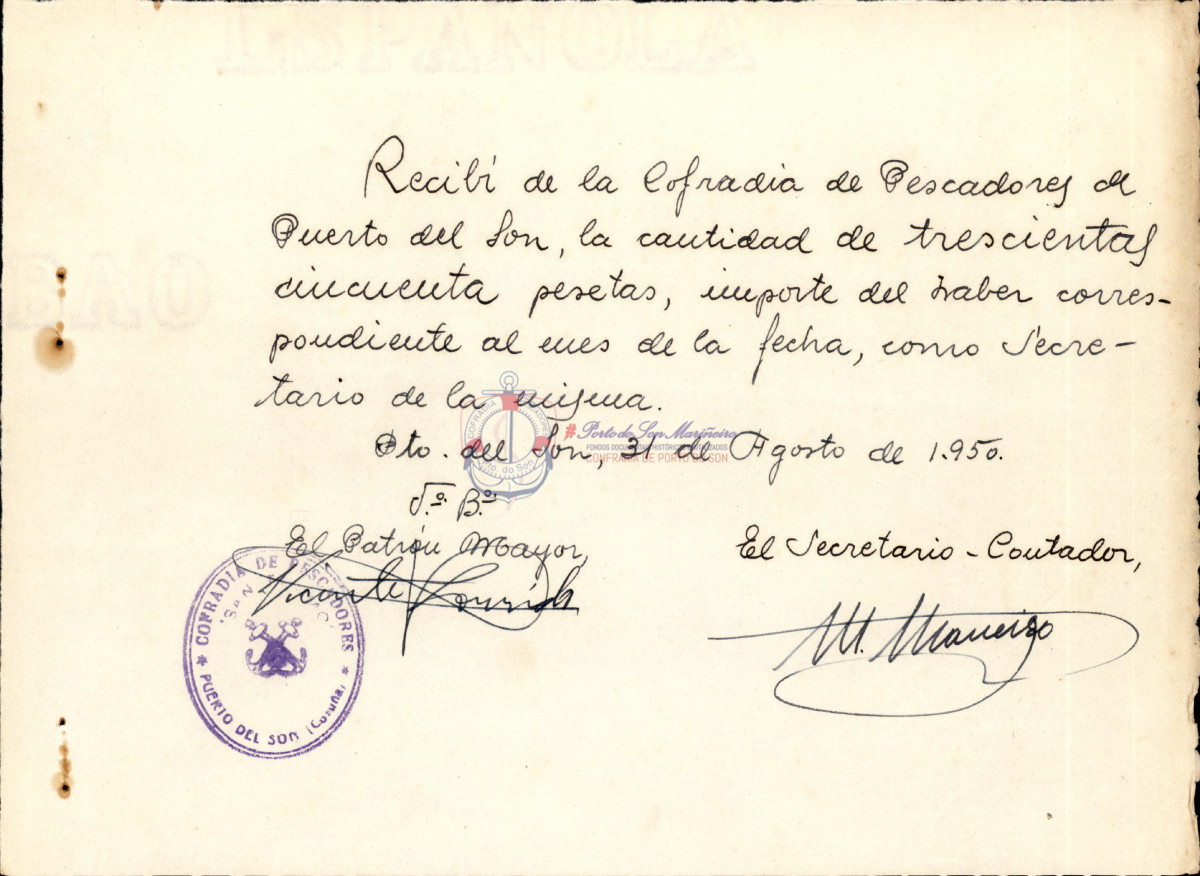 ESPAÑOLA
Recibí de la Cofradia de Pescadores de
Puerto del Son, la cantidad de trescientas
cincuenta pesetas, importe del haber corres-
pondiente al mes de la fecha, como Secre-
tario de la misma.
Pto. del Son, 31 de Agosto de 1.950.
V.º B.º
El Patrón Mayor,
Vicente
El Secretario-Contador,
M. Maneiro
CONFRADIA DE PESCADORES
"SAN
PUERTO DEL SON (Coruña)
COFRADIA
Pto do Son
#Porto do Son Mariñeiro
FONDOS DOCUMENTAIS HISTÓRICOS
CONFRARÍA DE PORTO DO SON